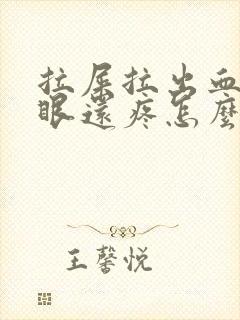 拉屎拉出血
眼還疼怎麼
王馨悦